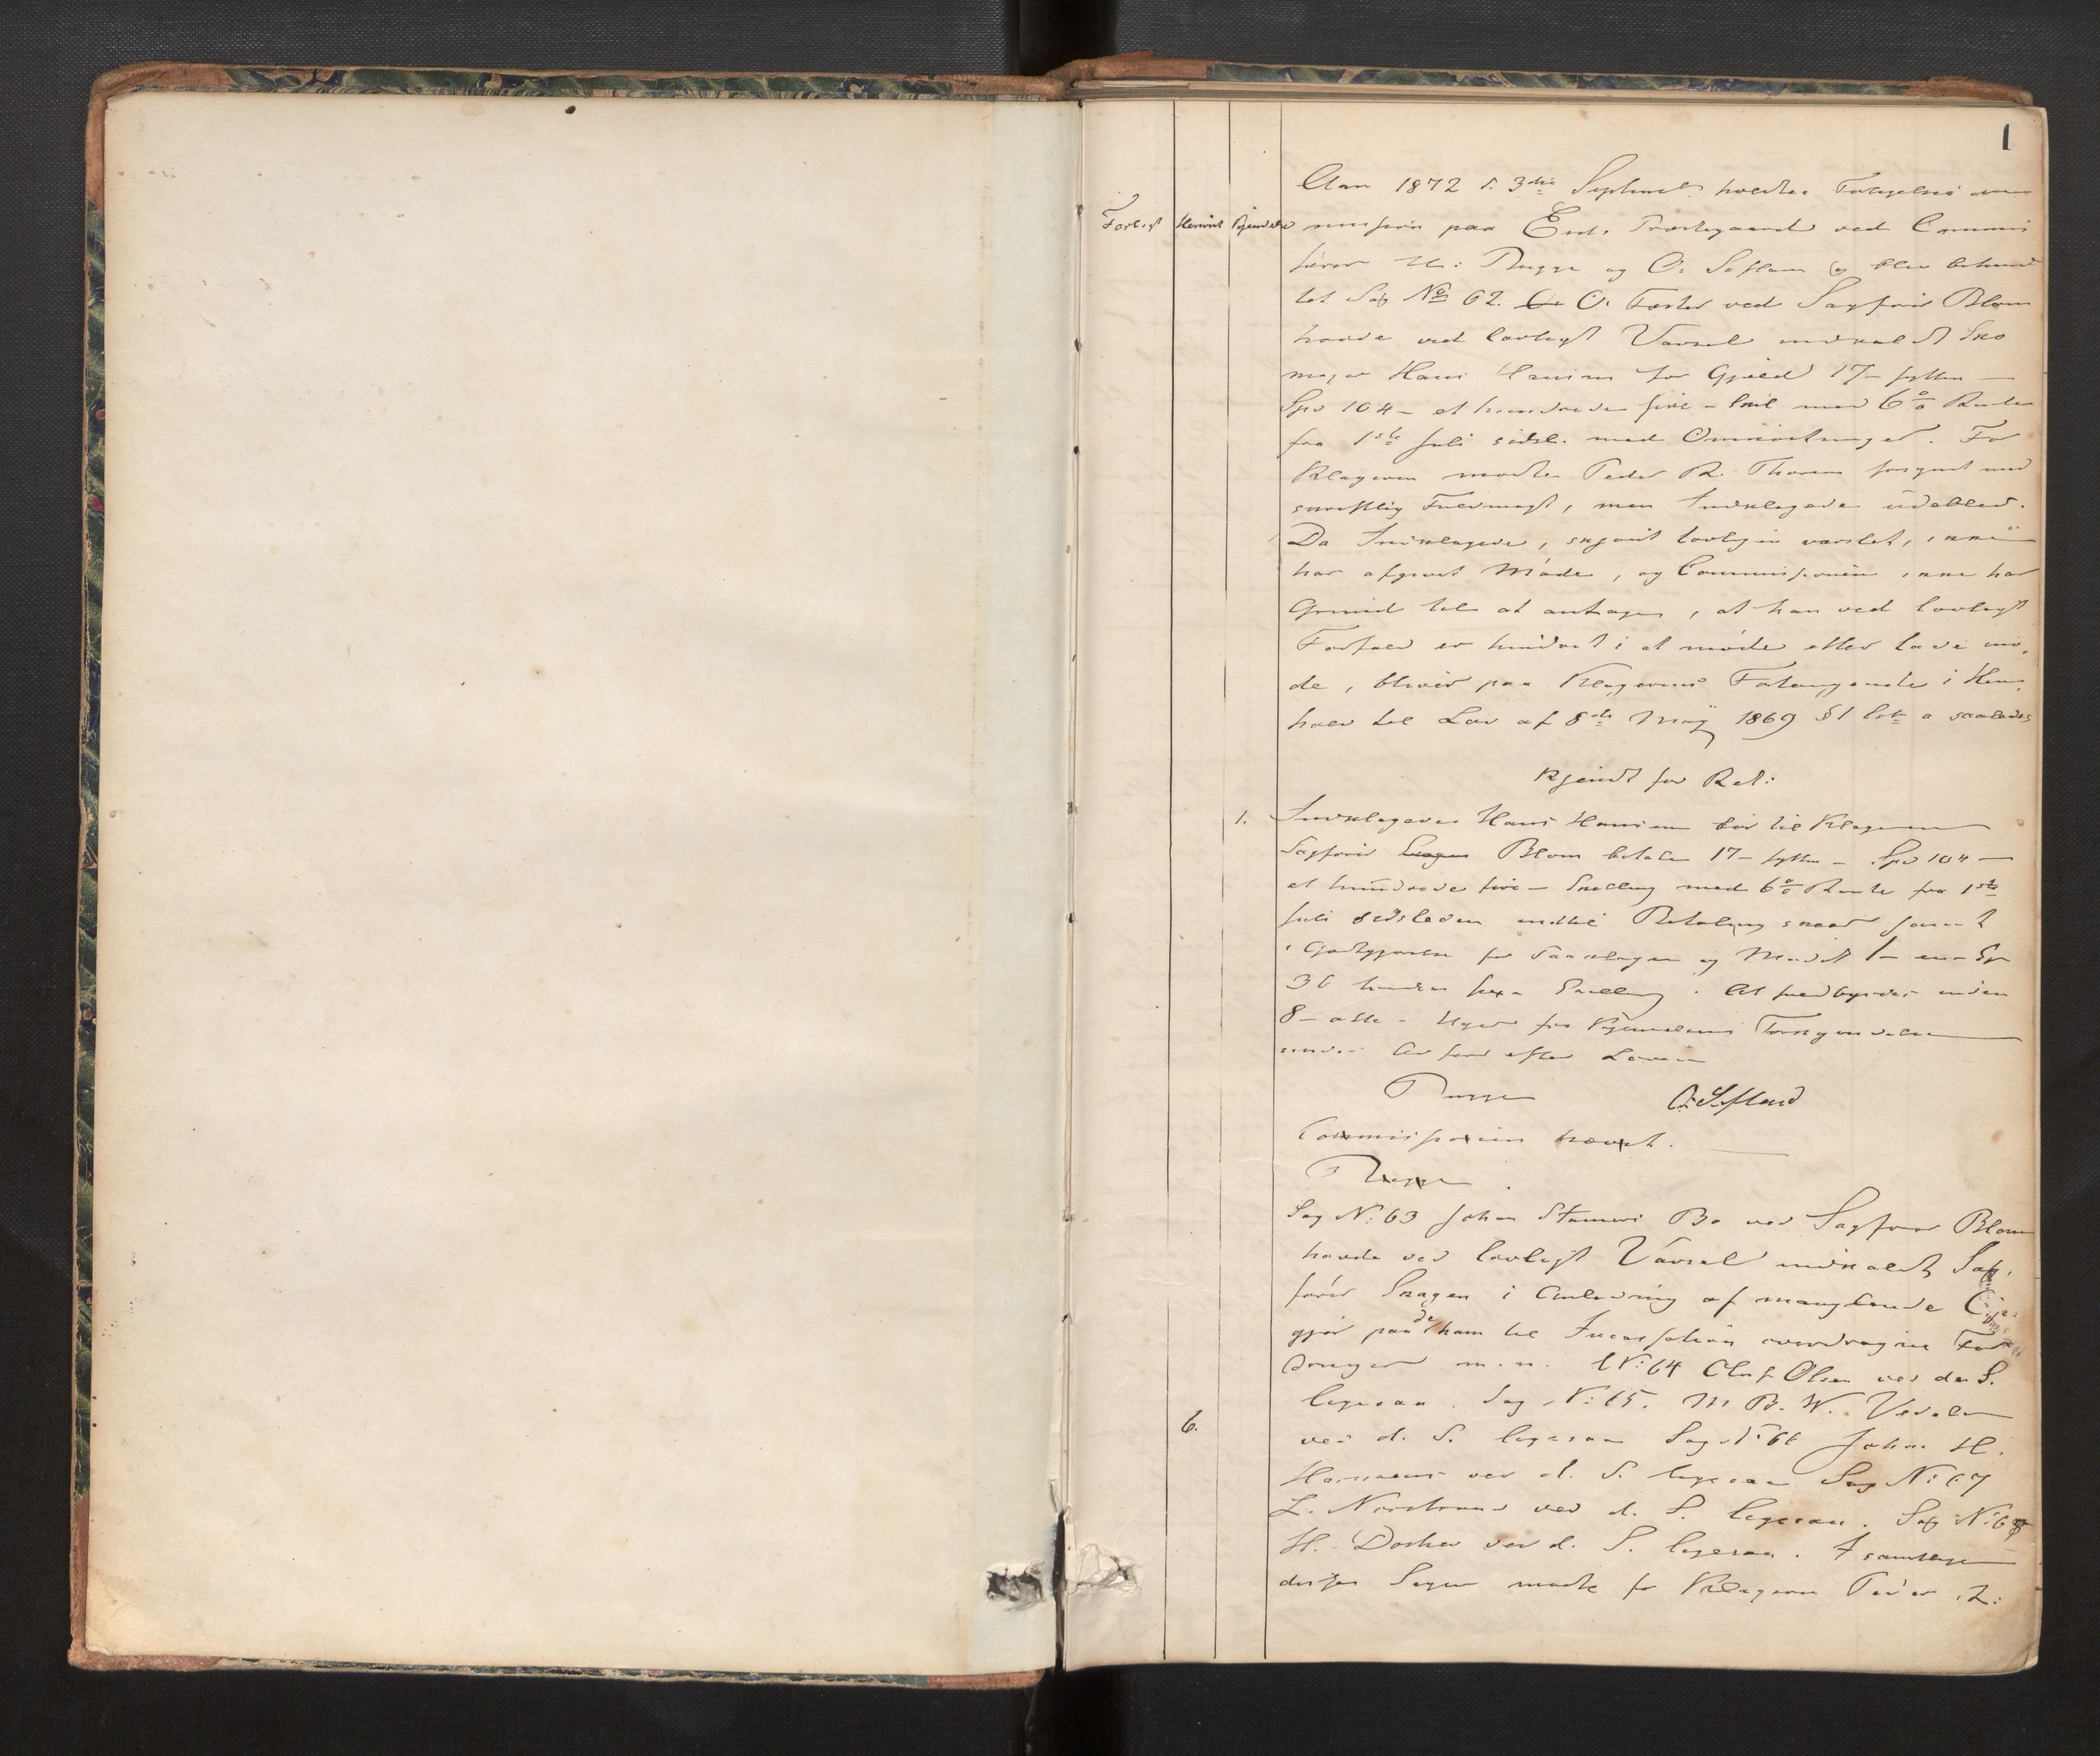 1
Forligt Henvist Kjendelse
Aar 1872 d. 3die Septembr holdtes Forligelses
mission paa Præstegaard ved Commis
særer H: Rugge og O: Sefland og blev behand
let Sag No 62. O. ved Sagfører Blom
havde ved lovligt Varsel indkaldt Sko
mager Hans Hansen for Gjæld 17 – sytten –
Spd 104 – et hundrede fire – Skil med 6% Rente
fra 1ste Juli sidstl. med Omkostninger. For
Klageren mødte Peder R. Thorsen forsynet med
skriftlig Fuldmagt, men Indklagede udeblev.
Da Indklagede, skjønt lovligen varslet, ikke
har afgivet Møde, og Commissionen ikke har
Grund til at antage, at han ved lovligt
Forfald er hindret i at møde eller lade mø,
de, bliver paa Klagerens Forlangende i Hen,
hold til Lov af 8de Maj 1869 § 1 Litr a saaledes
Kjendt for Ret:
1. Indklagede Hans Hansen bør til Klageren
Sagfører Blom betale 17 – sytten – Spd 104 –
et hundrede fire – Skilling med 6% Rente fra 1ste
Juli sidstleden indtil Betaling skeer samt
i Godtgjørelse for Paaklagen og Mødet 1 – en – Sp
36 Skilling. At fuldbyrdes inden
8 – otte – Uger fra Kjendelsens Forkyndelse
under Adfærd efter Loven
Rugge O: Sefland
Commissionen hævet.
Rugge
Sag N: 63 Johan Bo ved Sagfører Blom
havde ved lovligt Varsel indkaldt Sag,
fører Skagen i Anledning af manglende
gjør paa de ham til Incassation overdragne For
dringer m. m. N: 64 Oluf Olsen ved den S.
ligesaa. Sag N: 65. M B. W.
6. ved d. S. ligesaa Sag N: 66 Johan H.
Hansens ved d. S. ligesaa Sag N: 67
L. ved d. S. ligesaa. Sag N: 68
H. ved d. S. ligesaa. I samtlige
disse Sager mødte for Klageren Peder